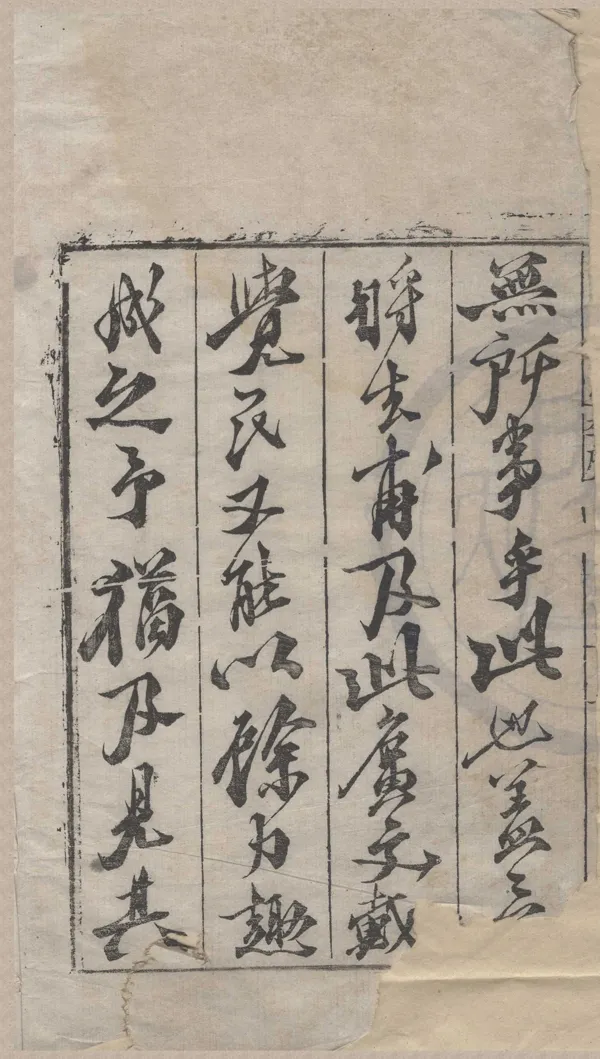 無所事乎此也盖
將去甫及此廣文戴
覺民又能以餘力趣
成之予猶及見其